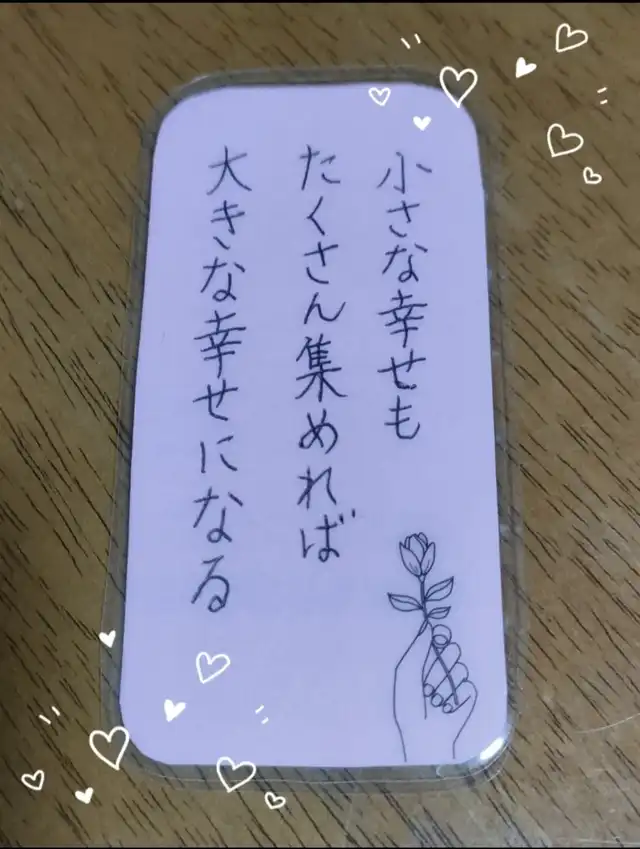 小さな幸せも
たくさん集めれば
大きな幸せになる